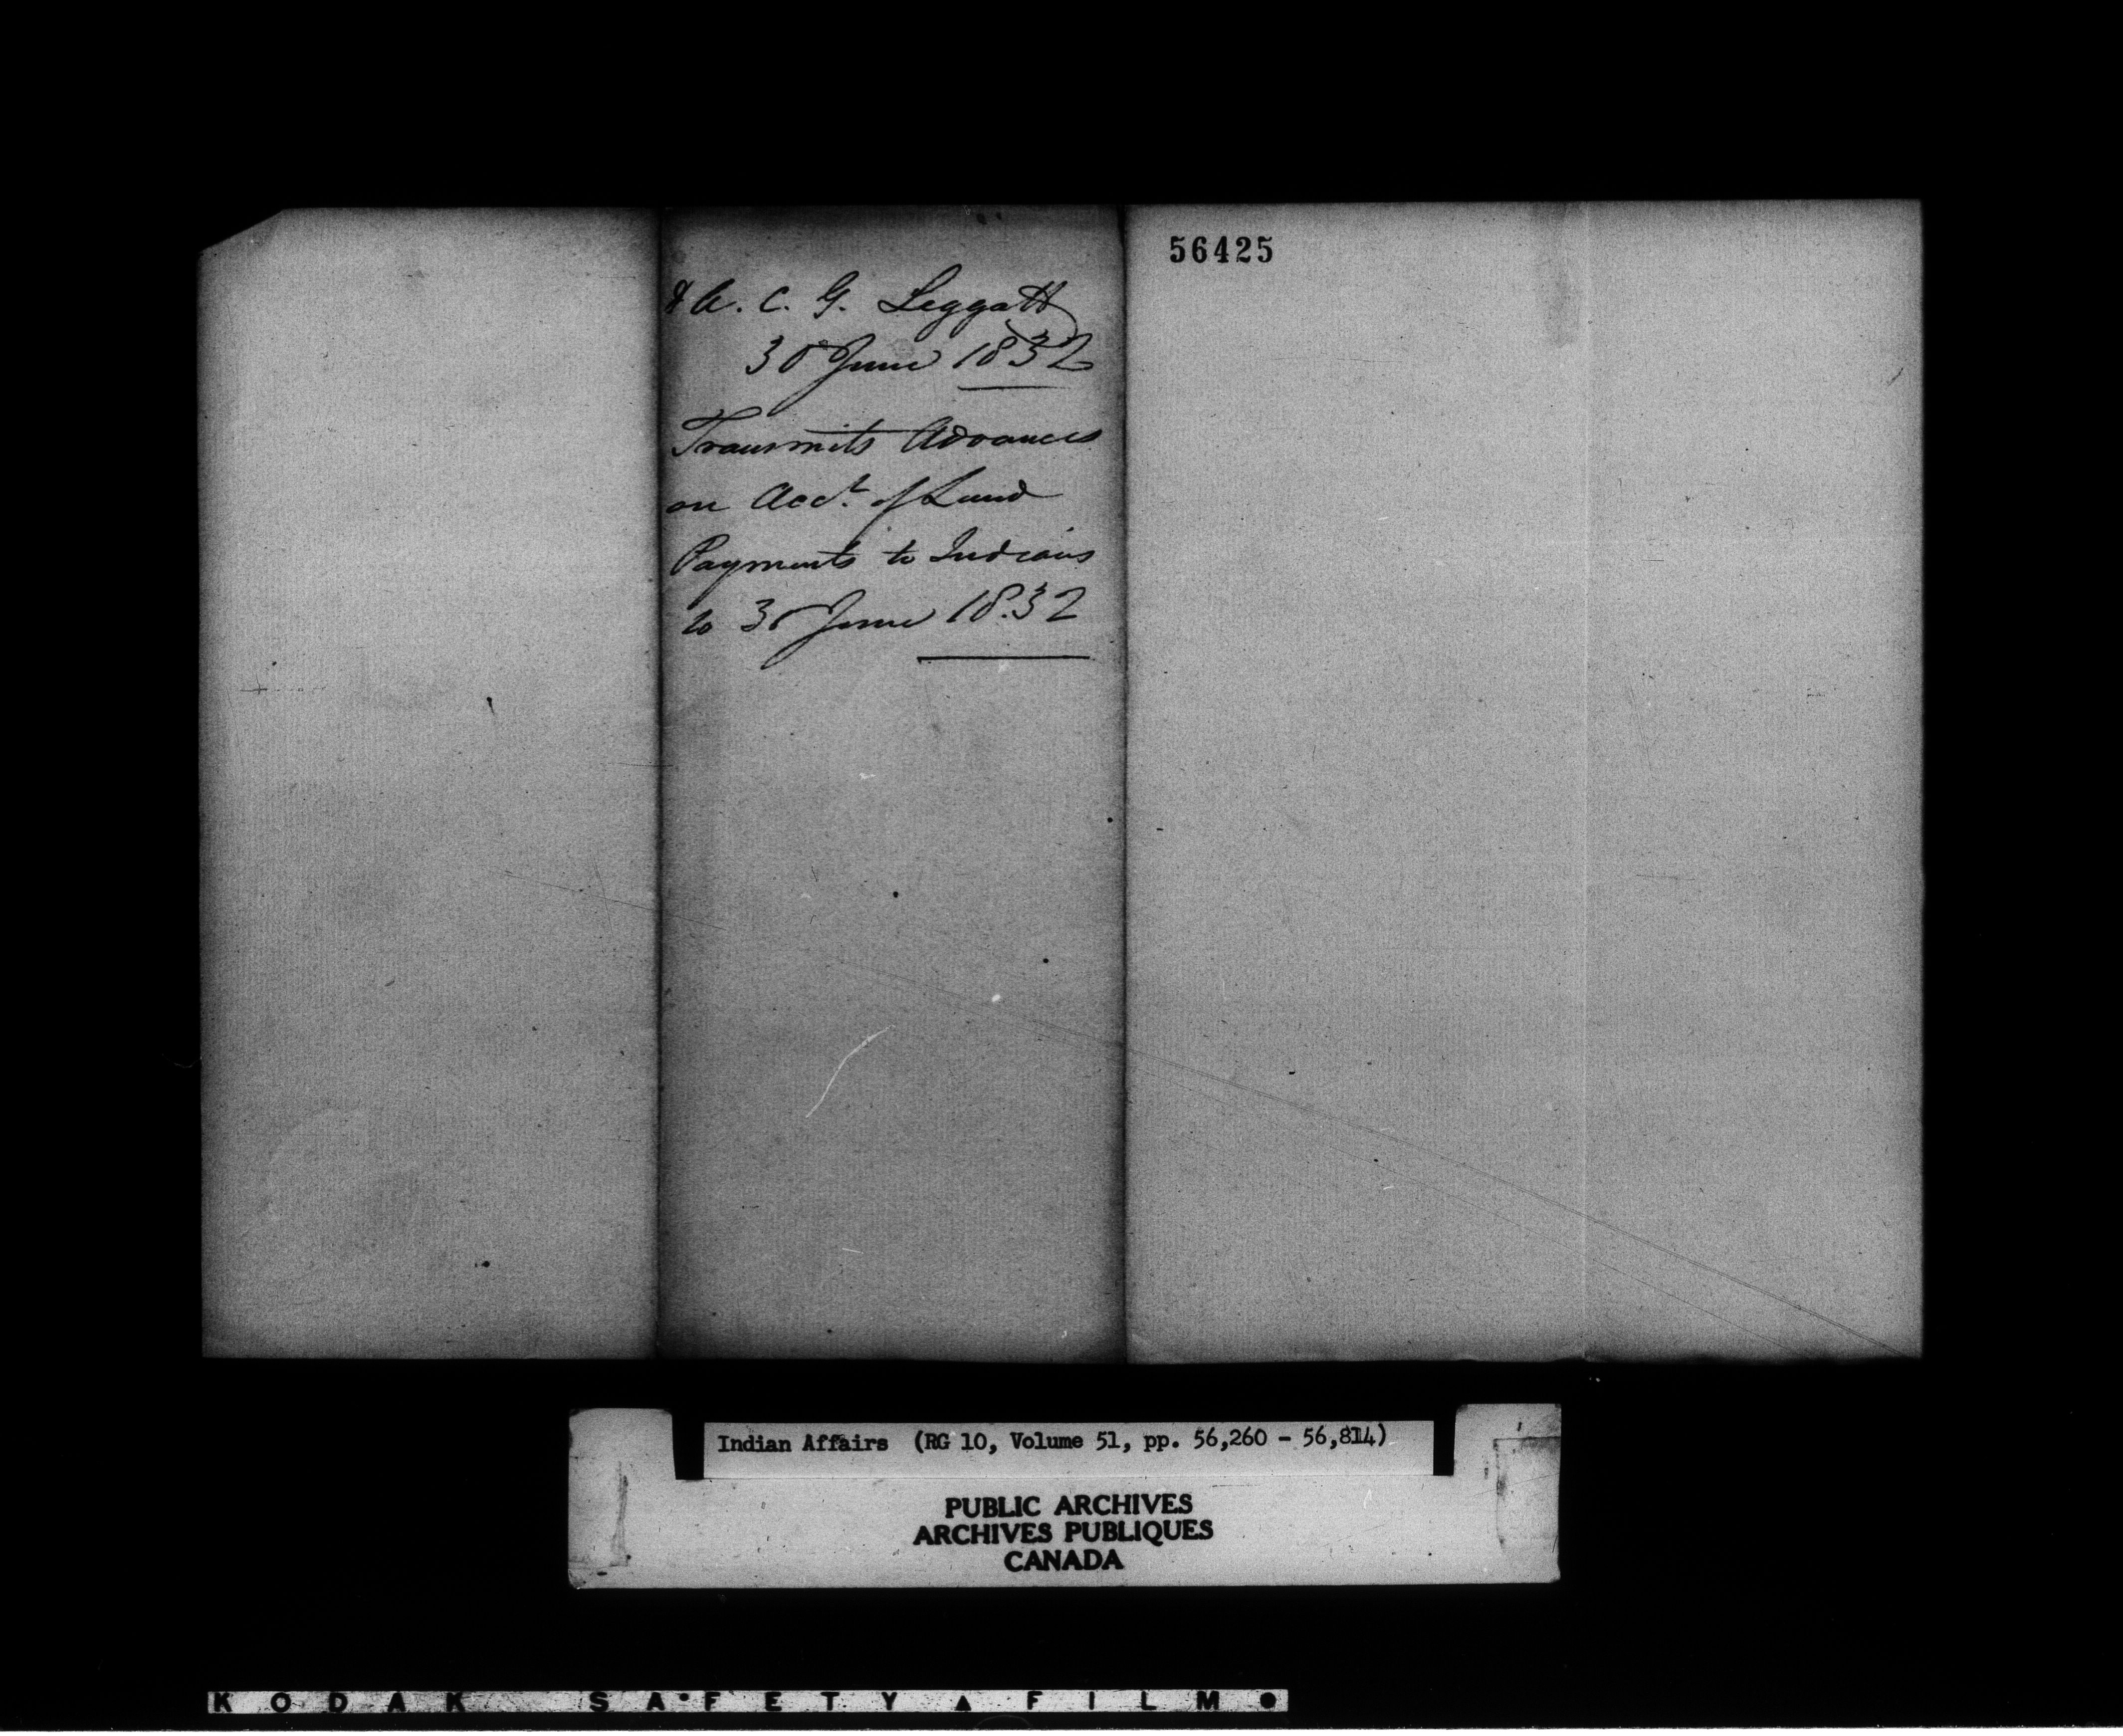 A. C. G. Leggatt
30 June 1832
Transmits Advances
on Acct. of Land
Payments to Indians
to 30 June 1832
56425
Indian Affairs (RG 10, Volume 51, pp. 56,260 - 56,814)
PUBLIC ARCHIVES
ARCHIVES PUBLIQUES
CANADA
KODAK SAFETY ▲ FILM ●